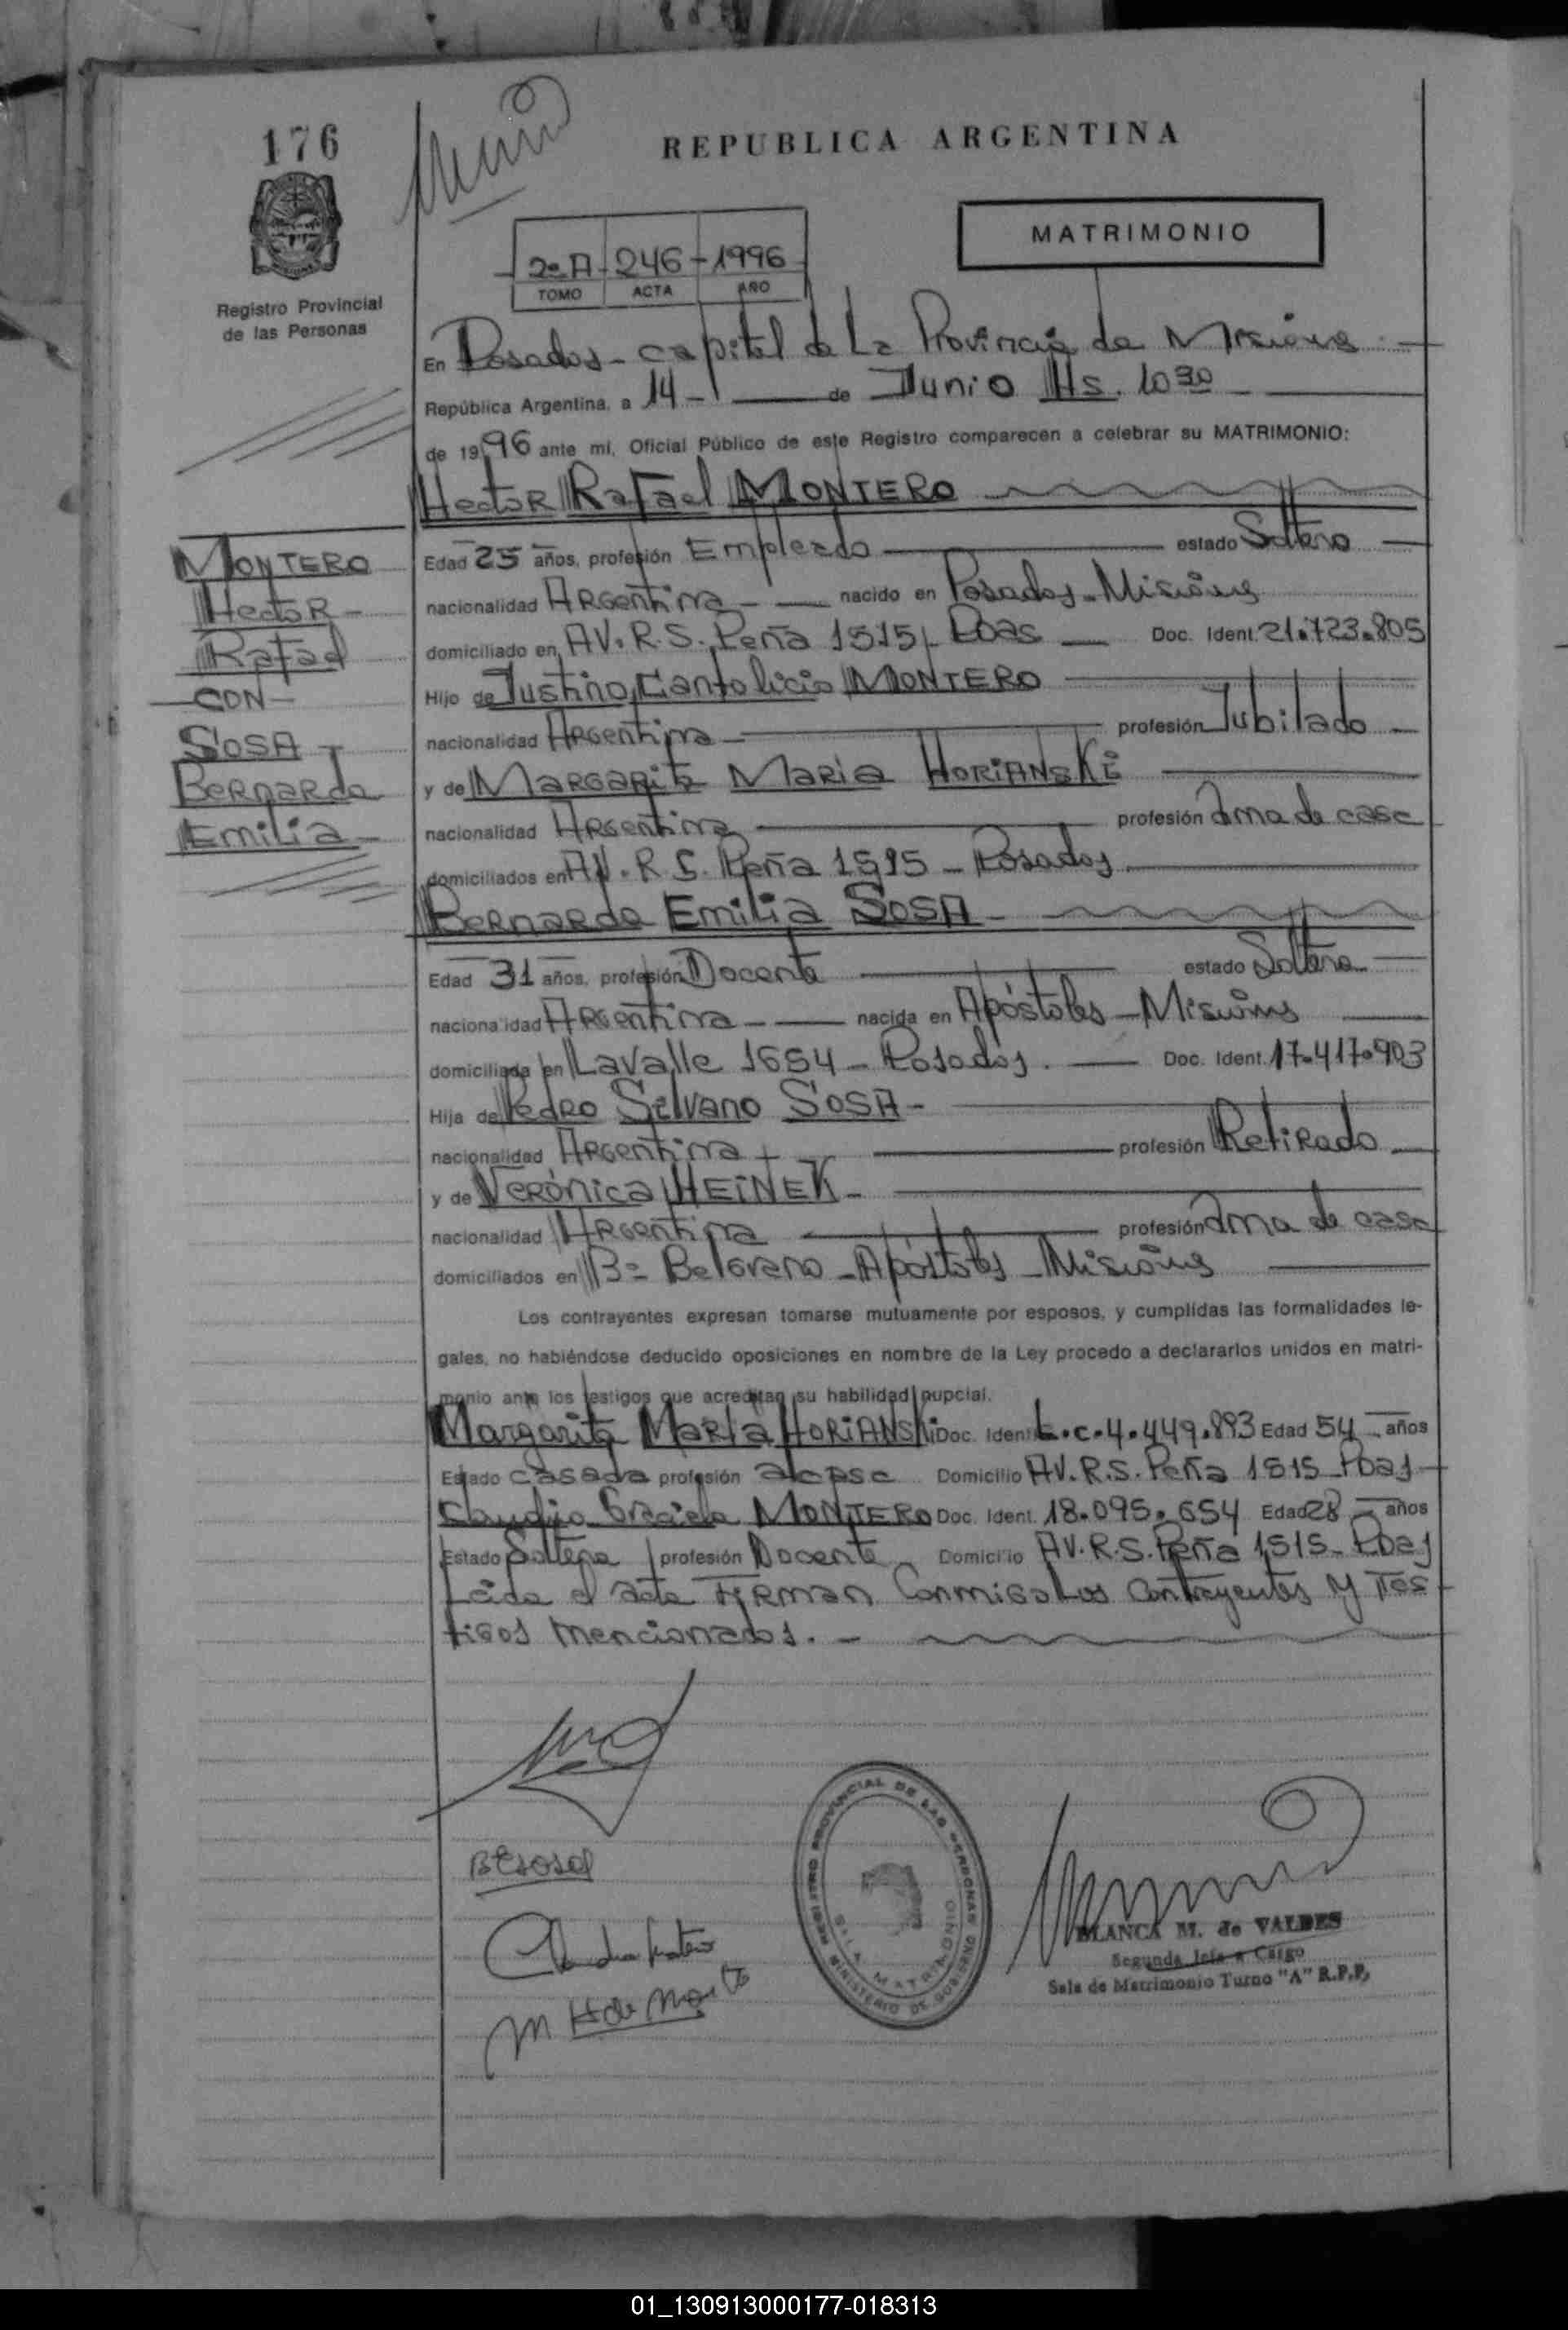 176
REPUBLICA ARGENTINA
MATRIMONIO
2º A - 246 - 1996
TOMO ACTA AÑO
Registro Provincial
de las Personas
En Posadas - capital de La Provincia de Misiones -
República Argentina, a 14 - de Junio Hs. 10 30
de 1996 ante mí, Oficial Público de este Registro comparecen a celebrar su MATRIMONIO:
Hector Rafael MONTERO
MONTERO
Hector -
Rafael
- CON -
SOSA -
Bernarda
Emilia -
Edad 25 años, profesión Empleado estado Soltero
nacionalidad Argentina - nacido en Posadas - Misiones
domiciliado en AV. R.S. Peña 1515 - Pdas Doc. Ident. 21.723.805
Hijo de Justino MONTERO
nacionalidad Argentina - profesión Jubilado -
y de Margarita Maria HORIANSKI
nacionalidad Argentina profesión Ama de casa
domiciliados en AV. R S. Peña 1515 - Posadas
Bernarda Emilia SOSA -
Edad 31 años, profesión Docente estado Soltera
nacionalidad Argentina - nacida en Apóstoles - Misiones
domiciliada en Lavalle 1654 - Posadas. Doc. Ident. 17.417.903
Hija de Pedro Silvano SOSA -
nacionalidad Argentina profesión Retirado
y de Verónica HEINEK -
nacionalidad Argentina profesión Ama de casa
domiciliados en Bº Belgrano - Apóstoles - Misiones
Los contrayentes expresan tomarse mutuamente por esposos, y cumplidas las formalidades le-
gales, no habiéndose deducido oposiciones en nombre de la Ley procedo a declararlos unidos en matri-
monio ante los testigos que acreditan su habilidad nupcial.
Margarita Maria HORIANSKI Doc. Ident. L.C. 4.449.893 Edad 54 años
Estado casada profesión Domicilio AV. R.S. Peña 1515 - Pdas
Claudia Graciela MONTERO Doc. Ident. 18.095.654 Edad 28 años
Estado Soltera profesión Docente Domicilio AV. R.S. Peña 1515 - Pdas
Leida el acta Firman Conmigo Los Contrayentes y Tes
tigos mencionados. -
BESosa
M H de Montero
REGISTRO PROVINCIAL DE LAS PERSONAS
SALA MATRIMONIO
MINISTERIO DE GOBIERNO
BLANCA M. de VALDES
Segunda Jefa a Cargo
Sala de Matrimonio Turno "A" R.P.P.
01_130913000177-018313